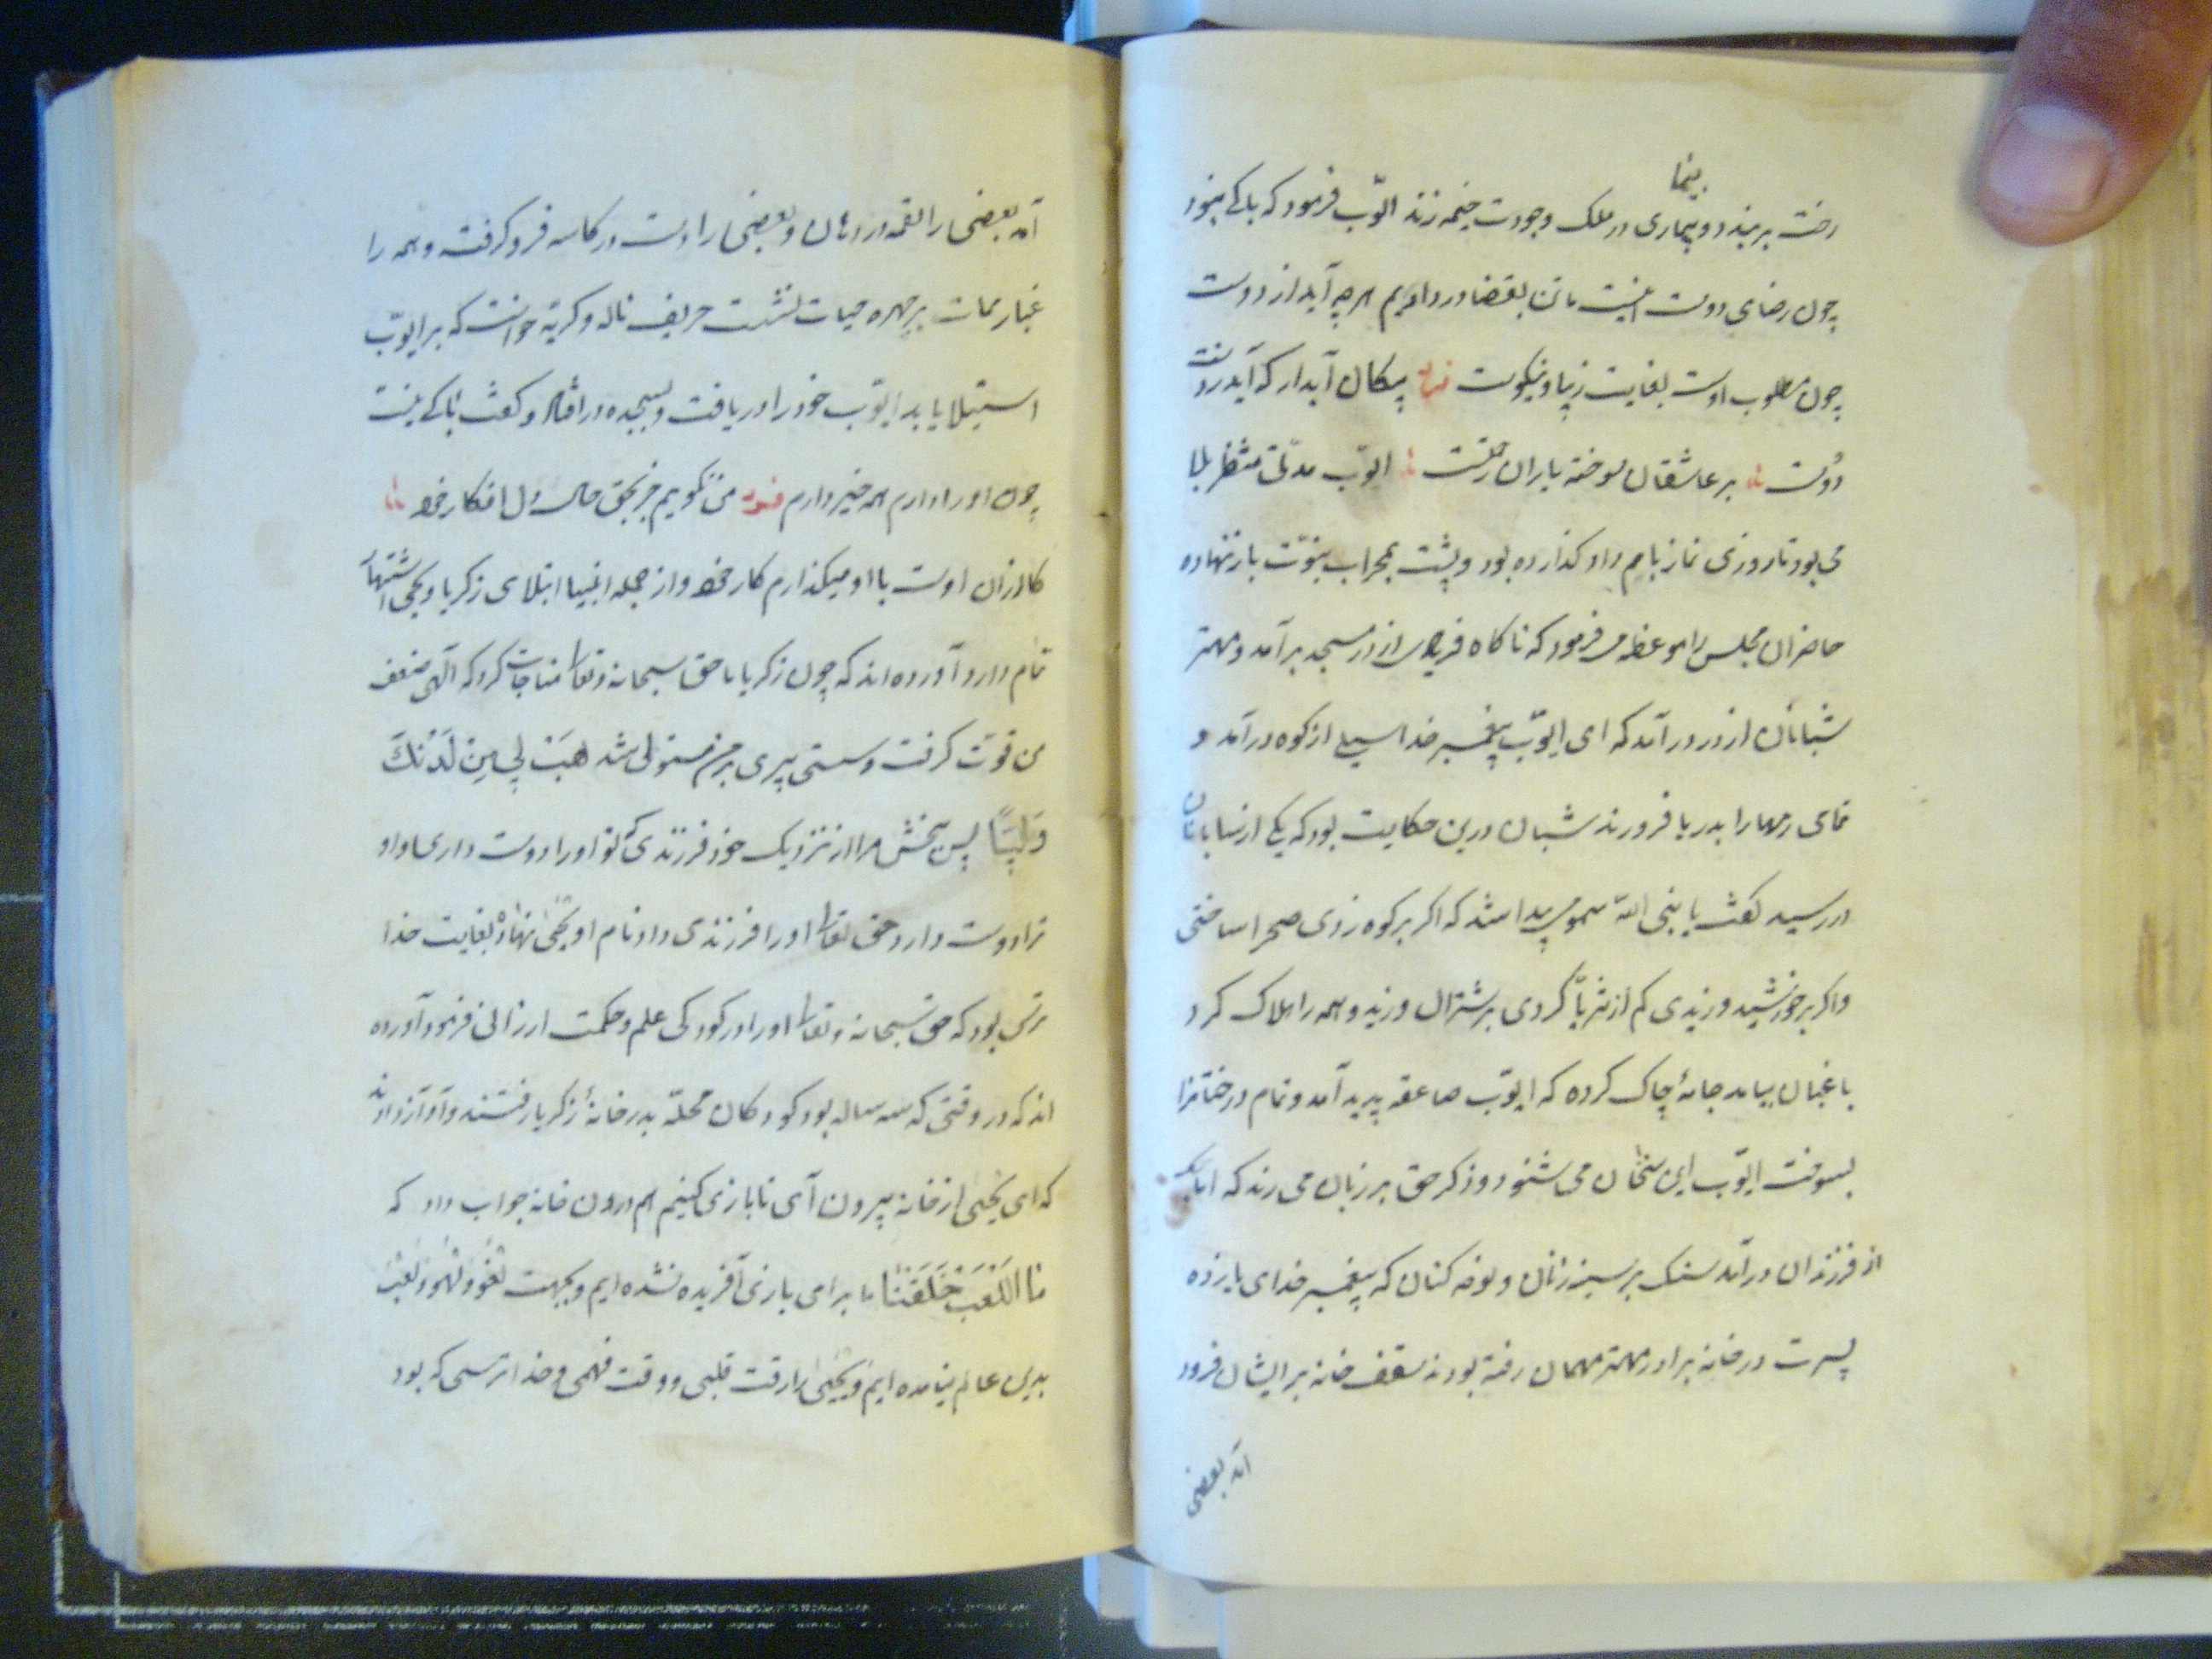 بنما
رخت بربندد و بیماری در ملک وجودت خیمه زند ایّوب فرمود که باکے نبود
چون رضای دوست اینست ما تن بقضا در دادیم هرچه آید از دوست
چون مطلوب اوست بغایت زیبا و نیکوست فرد پیکان آبدار که آید ز دست
دوست بر عاشقان سوخته باران رحمتست ایّوب مدّتی منتظر بلا
می بود تا روزی نماز بامداد گذارده بود و پشت بمحراب نبوّت باز نهاده
حاضران مجلس را موعظه میفرمود که ناکاه فریادی از در مسجد برآمد و مهتر
شبانان از در درآمد که ای ایّوب پیغمبر خدا سیلی از کوه درآمد و
تمامی رمها را بدریا فرو برد شبان درین حکایت بود که یکے از ساربانان
در رسید کفت یا نبی اللّه سمومی پیدا شد که اکر بر کوه زدی صحرا ساختی
و اکر بر خورشید وزیدی کم از ثریّا کردی بر شتران وزید و همه را هلاک کرد
باغبان بیامد جامهٔ چاک کرده که ایّوب صاعقه پدید آمد و تمام درختانرا
بسوخت ایّوب این سخنان می شنود و ذکر حق بر زبان می راند که اتابک
فرزندان درآمد سنک بر سینه زنان و نوحه کنان که پیغمبر خدای یازده
پسرت در خانه برادر مهتر مهمان رفته بودند سقف خانه بر ایشان فرود
آمد بعضی
آمد بعضی را لقمه در دهان و بعضی را دست در کاسه فرو کرفت و همه را
غبار ممات بر چهره حیات نشست حریف ناله و کریه خواست که بر ایّوب
استیلا یابد ایّوب خود را دریافت و بسجده در افتاد و کفت باکے نیست
چون او را دارم همه چیز دارم فرد می نکویم جز بحق حال دل افکار خود
کارزان اوست با او میکذارم کار خود و از جمله انبیا ابتلای زکریا و یحیی اشتهار
تمام دارد آورده اند که چون زکریا با حق سبحانه و تعالی مناجات کرد که الهی ضعف
من قوّت کرفت و سستی پیری بر من مستولی شد هَبْ لِی مِنْ لَدُنْكَ
وَلِیًّا پس ببخش مرا از نزدیک خود فرزندی که تو او را دوست داری و او
ترا دوست دارد حق تعالی او را فرزندی داد نام او یحیی نهاد و بغایت خدا
ترس بود که حق سبحانه و تعالی او را در کودکی علم و حکمت ارزانی فرمود آورده
اند که در وقتی که سه ساله بود کودکان محلّه بدر خانهٔ زکریا رفتند و آواز دادند
که ای یحیی از خانه بیرون آی تا بازی کنیم هم از درون خانه جواب داد که
مَا لِلَّعْبِ خُلِقْنَا ما برای بازی آفریده نشده ایم و بجهت لغو و لهو و لعب
بدین عالم نیامده ایم و یحیی را رقت قلبی و وقت فهمی و خدا ترسی که بود